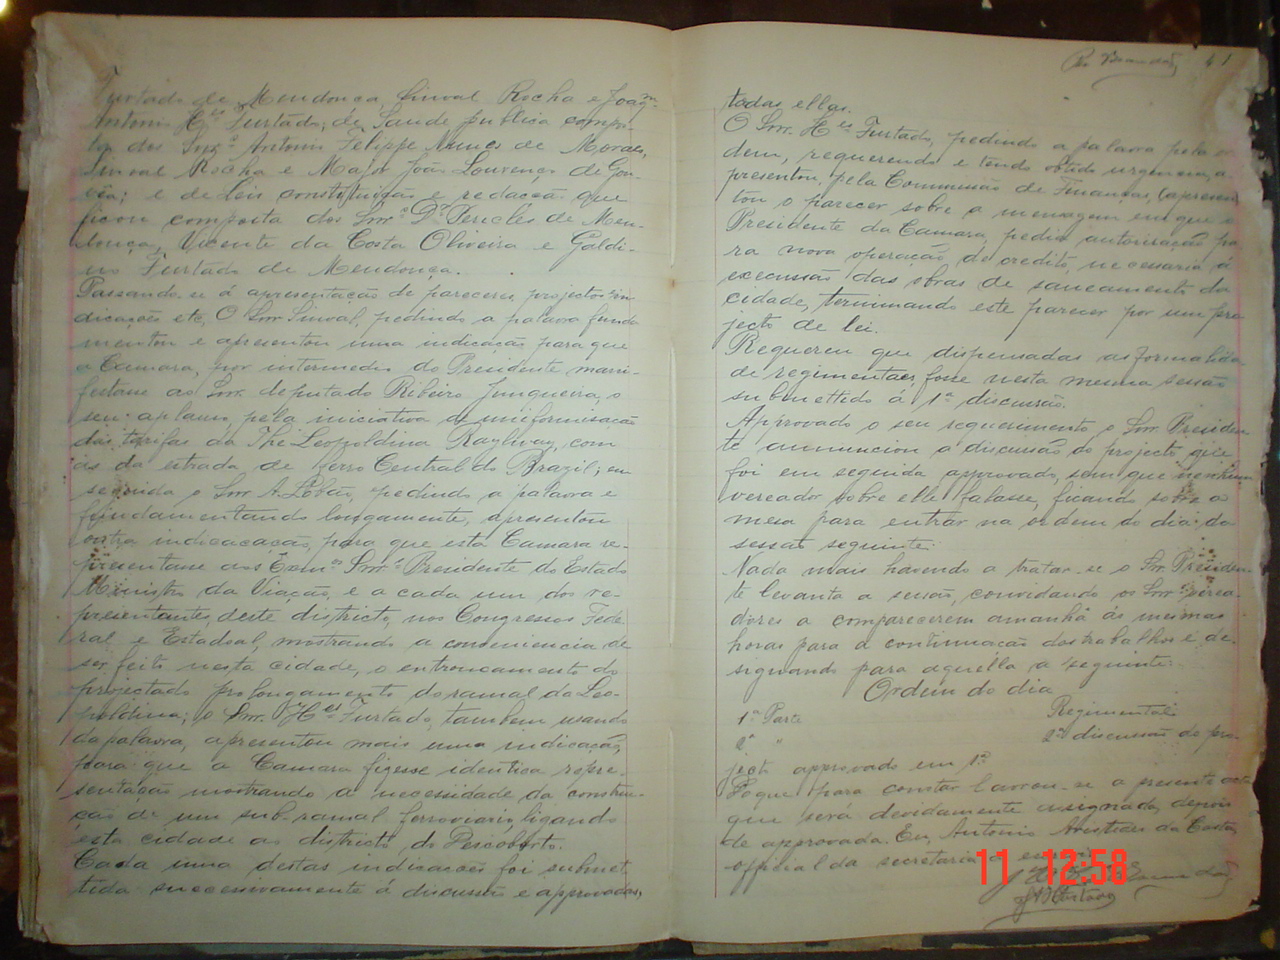 Furtado de Mendonça, Sinval Rocha e Joaqm
Antonio Hes Furtado; de Saude publica compos-
ta dos Snrs Antonio Felippe Nunes de Moraes,
Sinval Rocha e Major João Lourenço de Gou-
vêa; e de Leis constituição e redacção que
ficou composta dos Snrs Dr Pericles de Men-
donça, Vicente da Costa Oliveira e Galdi-
no Furtado de Mendonça.
Passando-se á apresentação de pareceres, projectos in-
dicações etc, O Snr Sinval, pedindo a palavra funda
mentou e apresentou uma indicação para que
a Camara, por intermedio do Presidente, mani-
festasse ao Snr. deputado Ribeiro Junqueira, o
seu aplauso pela iniciativa de uniformisação
das tarifas da The Leopoldina Raylway, com
as da estrada de ferro Central do Brazil; em
seguida o Snr A. Lobão, pedindo a palavra e
fundamentando longamente, apresentou
outra indicacação, para que esta Camara re-
presentasse aos Exmos Snrs Presidente do Estado
Ministro da Viação, e a cada um dos re-
presentantes deste districto, nos Congressos Fede-
ral e Estadoal, mostrando a conveniencia de
ser feito nesta cidade, o entroncamento do
projectado prolongamento do ramal da Leo-
poldina; o Snr. Hes Furtado, tambem usando
da palavra, apresentou mais uma indicação,
para que a Camara fizesse identica repre-
sentação mostrando a necessidade da constru-
cção de um sub-ramal ferroviario, ligando
esta cidade ao districto do Descoberto.
Cada uma destas indicações foi submet
tida successivamente á discussão e approvadas,
41
todas ellas.
O Snr. Hes Furtado, pedindo a palavra pela or
dem, requerendo e tendo obtido urgencia, a
presentou, pela Commissão de Finanças, (apresen
tou o parecer sobre a mensagem em que o
Presidente da Camara, pedia autorização pa
ra nova operação de credito, necessaria á
execussão das obras de saneamento da
cidade, terminando este parecer por um pro
jecto de lei.
Requereu que dispensadas as formalida
de regimentaes, fosse nesta mesma sessão
submettido á 1ª discussão.
Approvado o seu requerimento o Snr. Presiden
te annunciou a discussão do projecto, que
foi em seguida approvado, sem que nenhum
vereador sobre elle falasse, ficando sobre a
mesa para entrar na ordem do dia da
sessão seguinte.
Nada mais havendo a tratar-se o Snr. Presiden
te levanta a sessão, convidando os Snrs verea
dores a comparecerem amanhã ás mesmas
horas para a continuação dos trabalhos e de-
signando para aquella a seguinte:
Ordem do dia
1ª Parte Regimental
2ª " 2ª discussão do pro-
jecto approvado em 1ª
Do que para constar lavrou-se a presente acta
que será devidamente assignada, depois
de approvada. Eu, Antonio Aristides da Costa,
official da secretaria
11 12:58